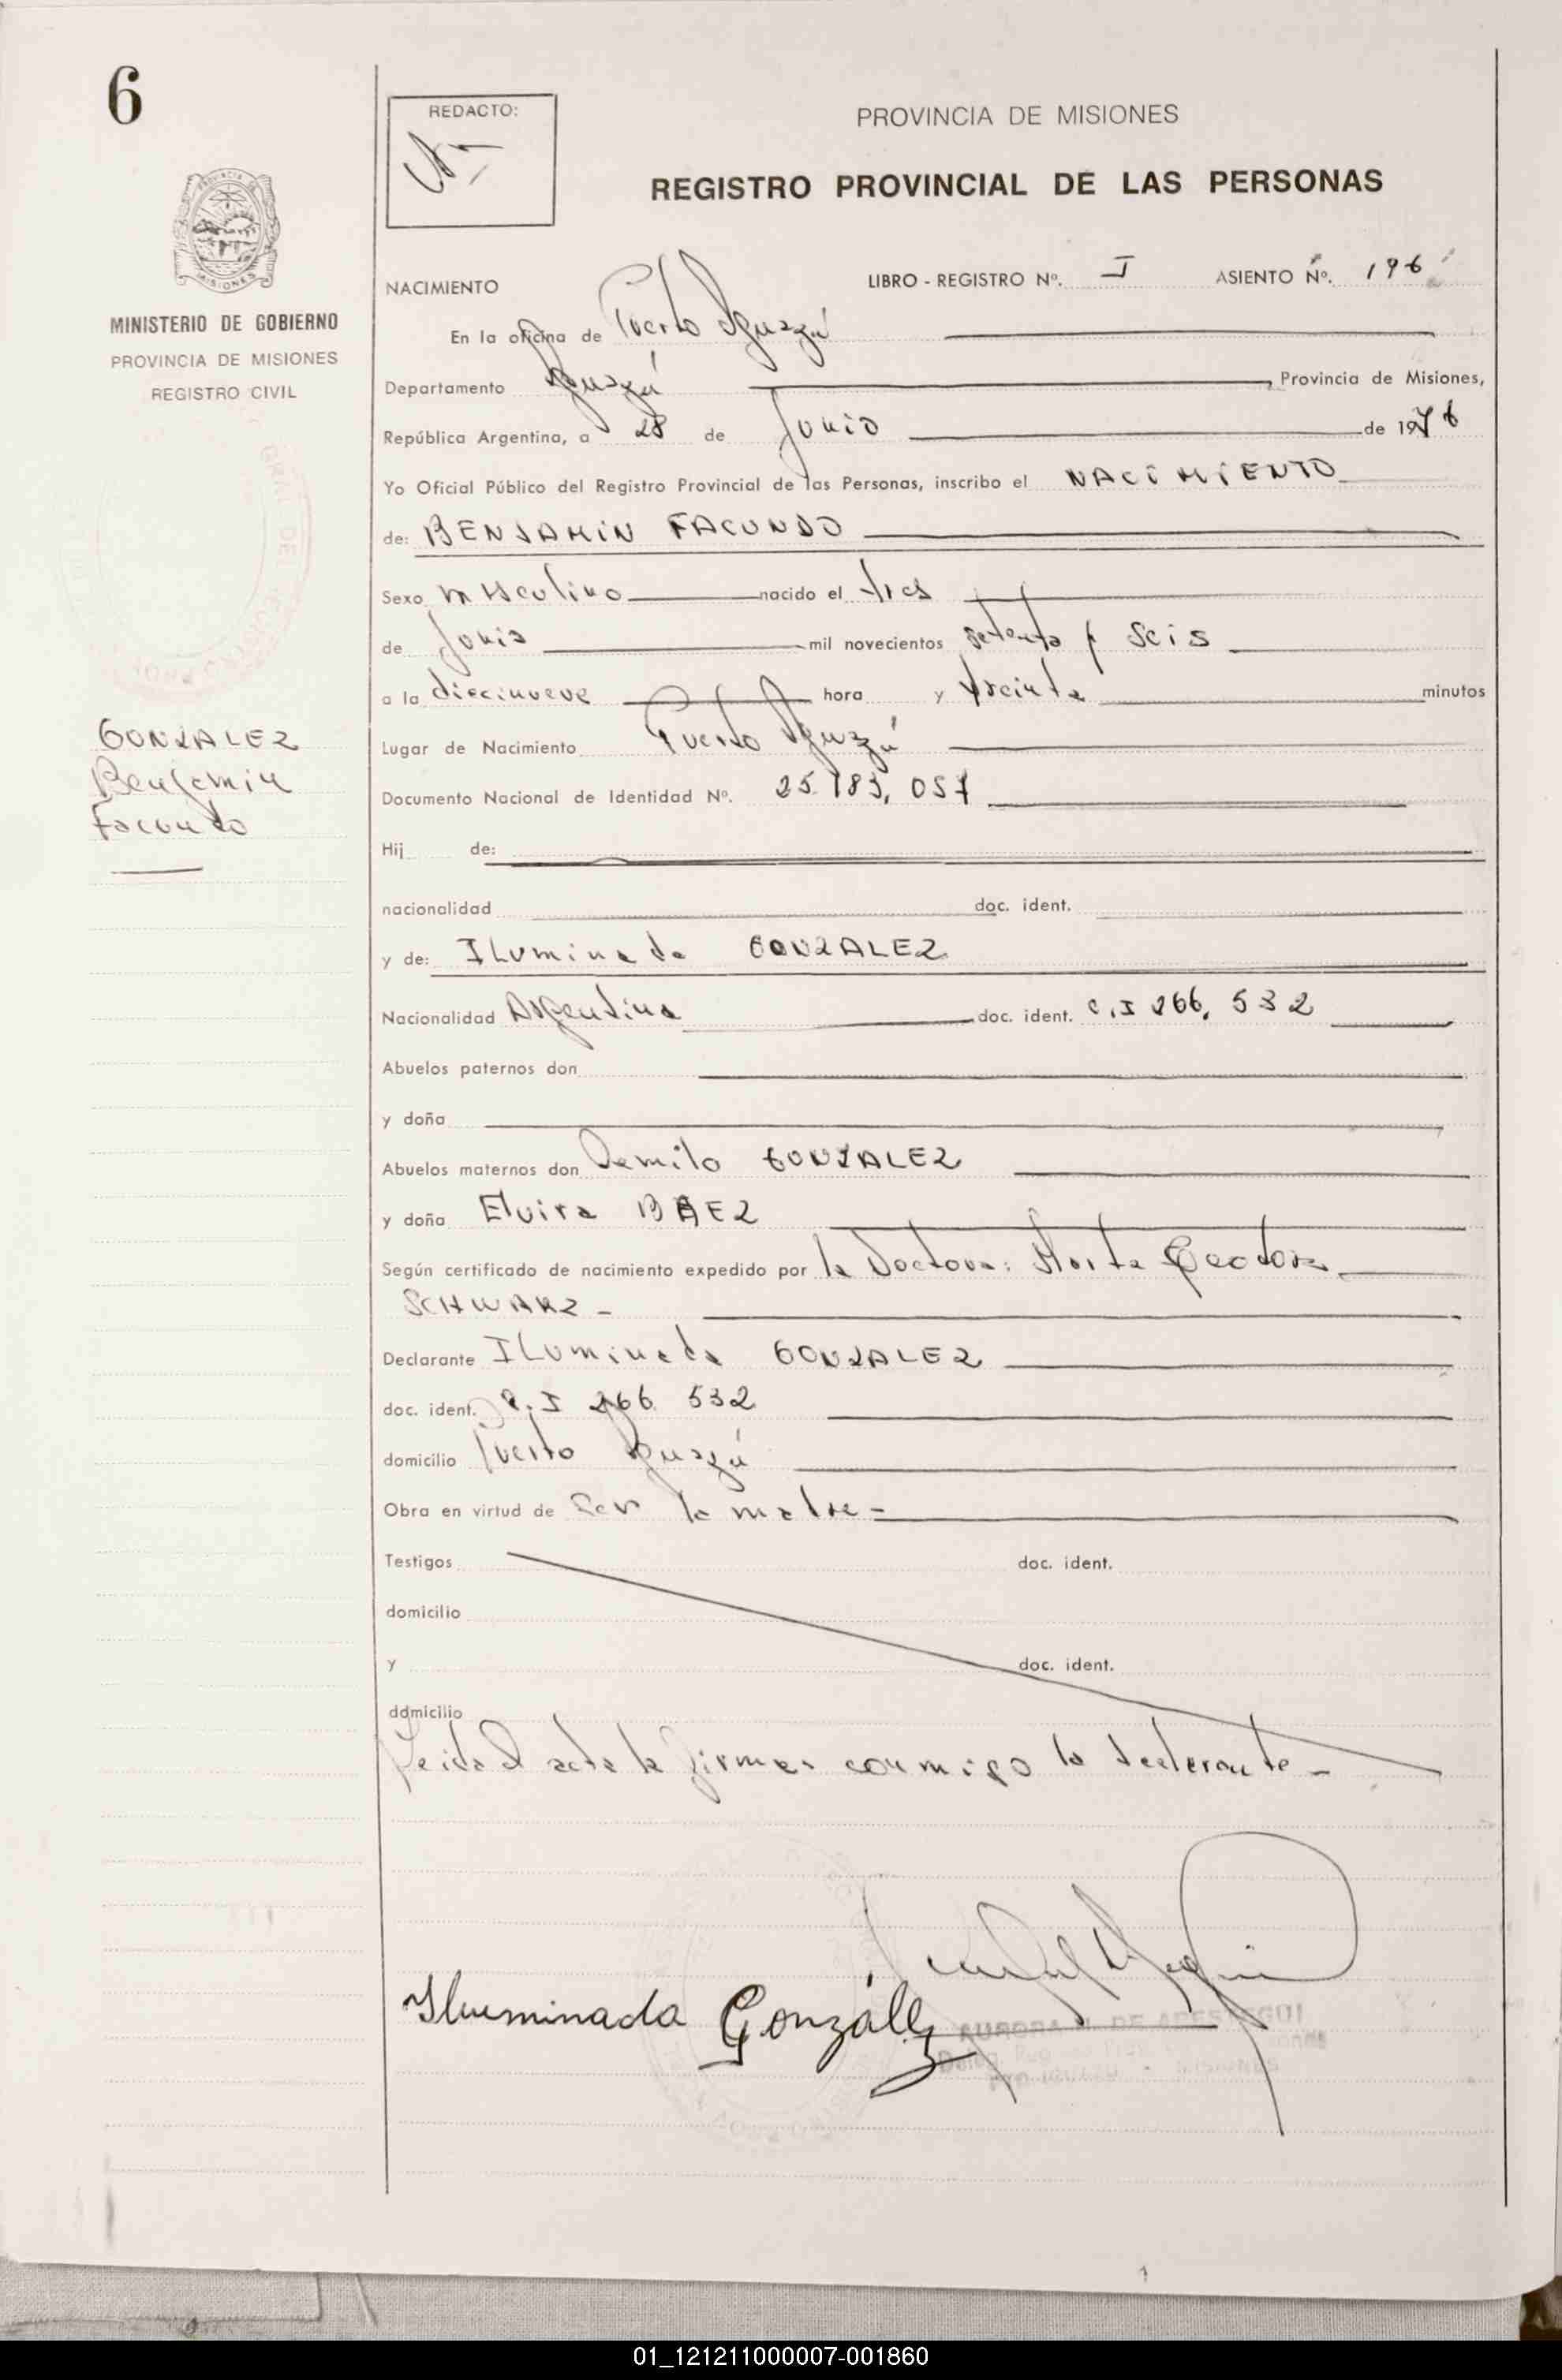 6
REDACTO:
PROVINCIA DE MISIONES
REGISTRO PROVINCIAL DE LAS PERSONAS
MINISTERIO DE GOBIERNO
PROVINCIA DE MISIONES
REGISTRO CIVIL
NACIMIENTO
LIBRO - REGISTRO Nº. I ASIENTO Nº. 196
En la oficina de Puerto Iguazú
Departamento Iguazú, Provincia de Misiones,
República Argentina, a 28 de Junio de 1976
Yo Oficial Público del Registro Provincial de las Personas, inscribo el NACIMIENTO
de: BENJAMIN FACUNDO
Sexo masculino nacido el tres
de Junio mil novecientos setenta y seis
a la diecinueve hora y treinta minutos
GONZALEZ
Benjamin
Facundo
Lugar de Nacimiento Puerto Iguazú
Documento Nacional de Identidad Nº. 25.183.057
Hij de:
nacionalidad doc. ident.
y de: Iluminada GONZALEZ
Nacionalidad Argentina doc. ident. C.I 266.532
Abuelos paternos don
y doña
Abuelos maternos don GONZALEZ
y doña Elvira BAEZ
Según certificado de nacimiento expedido por la Doctora: Marta
SCHWARZ -
Declarante Iluminada GONZALEZ
doc. ident. C.I 266.532
domicilio Puerto Iguazú
Obra en virtud de Ser la madre =
Testigos doc. ident.
domicilio
y doc. ident.
domicilio
Leida el acta la firma conmigo la declarante -
Iluminada González
AURORA DE ARESTEGUI
01_121211000007-001860